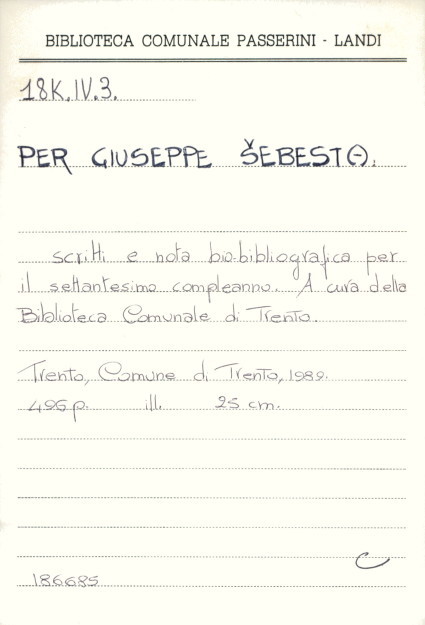 BIBLIOTECA COMUNALE PASSERINI - LANDI
18K.IV.3.
PER GIUSEPPE ŠEBEST(-).
scritti e nota bio-bibliografica per
il settantesimo compleanno. A cura della
Biblioteca Comunale di Trento.
Trento, Comune di Trento, 1989.
496 p. ill. 25 cm.
C
186685